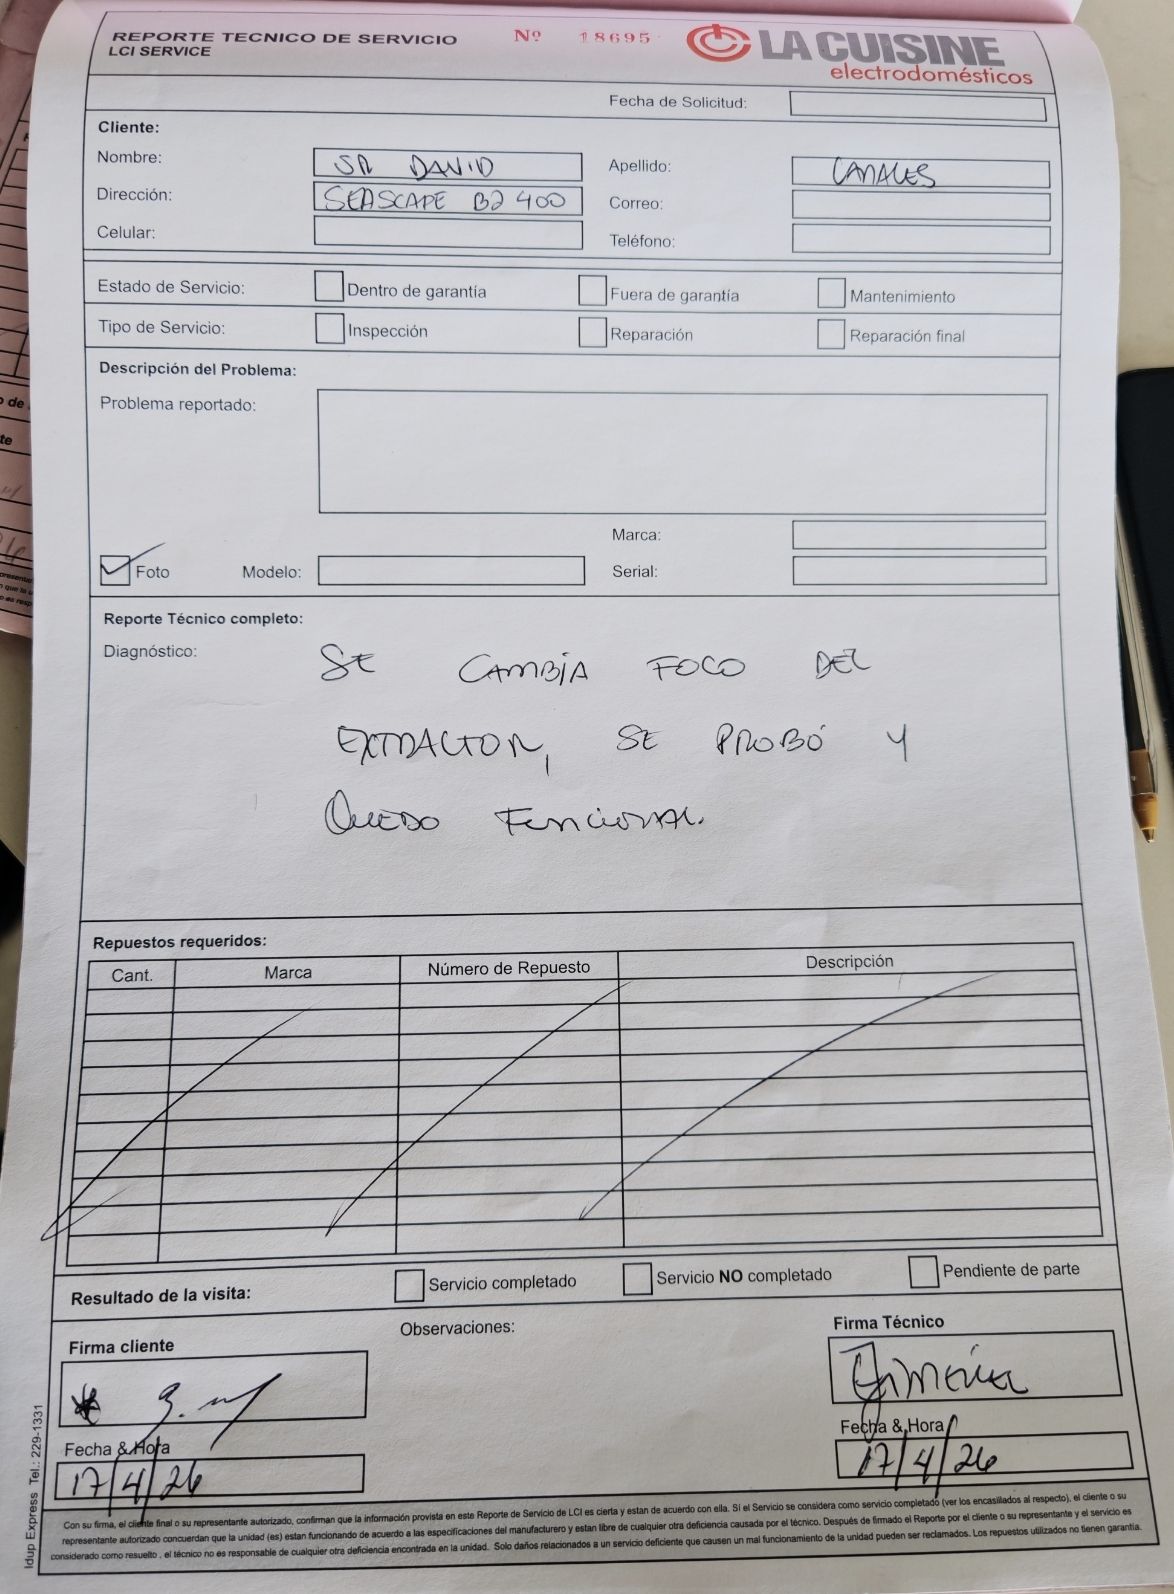 REPORTE TECNICO DE SERVICIO
LCI SERVICE
Nº 18695
LA CUISINE
electrodomésticos
Fecha de Solicitud:
Cliente:
Nombre: SR DAVID
Apellido: CANALES
Dirección: SEASCAPE B2 400
Correo:
Celular:
Teléfono:
Estado de Servicio: Dentro de garantía Fuera de garantía Mantenimiento
Tipo de Servicio: Inspección Reparación Reparación final
Descripción del Problema:
Problema reportado:
Marca:
Foto Modelo: Serial:
Reporte Técnico completo:
Diagnóstico: SE CAMBIA FOCO DEL
EXTRACTOR, SE PROBÓ Y
QUEDO FUNCIONAL.
Repuestos requeridos:
Cant. Marca Número de Repuesto Descripción
Resultado de la visita: Servicio completado Servicio NO completado Pendiente de parte
Observaciones:
Firma cliente
Firma Técnico
Fecha & Hora
17/4/26
Fecha & Hora
17/4/26
Con su firma, el cliente final o su representante autorizado, confirman que la información provista en este Reporte de Servicio de LCI es cierta y estan de acuerdo con ella. Si el Servicio se considera como servicio completado (ver los encasillados al respecto), el cliente o su
representante autorizado concuerdan que la unidad (es) estan funcionando de acuerdo a las especificaciones del manufacturero y estan libre de cualquier otra deficiencia causada por el técnico. Después de firmado el Reporte por el cliente o su representante y el servicio es
considerado como resuelto, el técnico no es responsable de cualquier otra deficiencia encontrada en la unidad. Solo daños relacionados a un servicio deficiente que causen un mal funcionamiento de la unidad pueden ser reclamados. Los repuestos utilizados no tienen garantía.
Idup Express Tel.: 229-1331